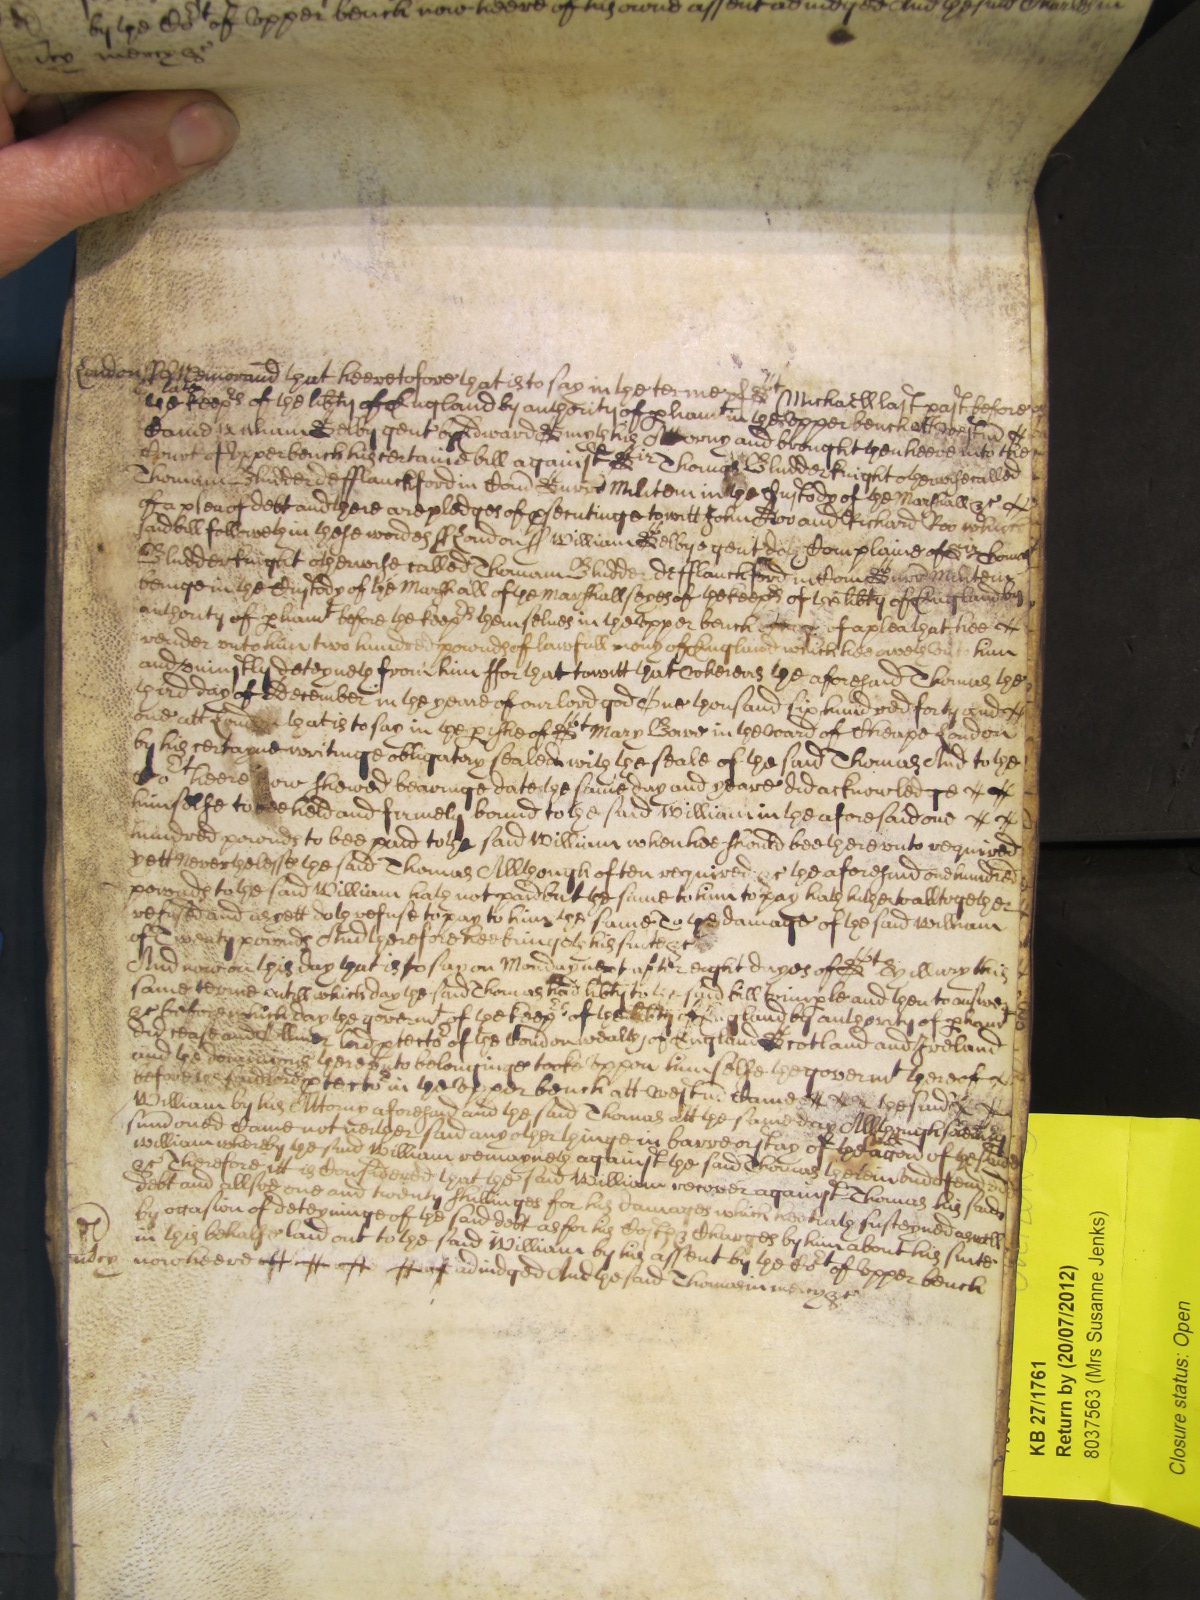 by the Cort of Upper bench now heere of his owne assent adiudged And the said Charles in
mercy &c
London ss Memorand that heeretofore that is to say in the terme of St Michaell last past before
late
the keeprs of the libty of England by authority of pliamt in the upper bench att Westm
Came William Selby gent by Edward Smyth his Attorny and brought then heere into the
Court of Upper bench his certaine bill against Sir Thomas Bludder knight otherwise called
Thomam Bludder de fflanckford in Com Surr Militem in the Custody of the Marshall &c
of a plea of debt and there are pledges of psecutinge to witt John Doo and Richard Roo which
said bill followeth in these wordes ss London ss William Selby gent doth Complaine of Sir Thomas
Bludder knight otherwise called Thomam Bludder de fflanckford in Com Surr Militem
beinge in the Custody of the Marshall of the Marshallseyes of the keeprs of the libty of England by
authority of pliamt before the keeprs themselves in the upper bench of a plea that hee
render unto him two hundred pownds of lawfull mony of England which hee oweth unto him
and uniustly deteyneth from him ffor that to witt that whereas the aforesaid Thomas the
third day of December in the yeare of our lord god One thousand six hundred forty and
one att London that is to say in the pishe of St Mary Bowe in the ward of Cheape London
by his certayne writinge obligatory sealed with the seale of the said Thomas And to the
Cort heere now shewed bearinge date the same day and yeare did acknowledge
himselfe to bee held and firmely bound to the said William in the aforesaid one
hundred pownds to bee paid to the said William when hee should bee thereunto required
yett neverthelesse the said Thomas Allthough often required &c the aforesaid one hundred
pownds to the said William hath not paid but the same to him to pay hath hitherto alltogether
refused and as yett doth refuse to pay to him the same To the damage of the said William
of Twenty pownds And therefore hee bringeth his suite &c
And now on this day that is to say on Monday next after eight dayes of St Hillary this
same terme untill which day the said Thomas had libty to the said bill to imple and then to answer
&c before which day the govermt of the keeprs of the libty of England by authority of pliamt
did cease and Oliver lord ptector of the Comonwealth of England Scotland and Ireland
and the dominions thereunto belonginge tooke uppon himselfe the govermt thereof
before the said lord ptector in the Upper bench att Westm Came the said
William by his Attorny aforesaid and the said Thomas att the same day Allthough solemly
sumoned Came not neither said any other thinge in barre or stay of the accon of the said
William whereby the said William remayneth against the said Thomas therein undefended
&c Therefore itt is Considered that the said William recover against Thomas his said
debt and allsoe one and twenty shillinges for his damages which hee hath susteyned aswell
by occasion of deteyninge of the said debt as for his Costs & Charges by him about his suite
in this behalfe laid out to the said William by his assent by the Cort of Upper bench
mercy
now heere adiudged And the said Thomas in mercy &c
KB 27/1761
Return by (20/07/2012)
8037563 (Mrs Susanne Jenks)
Closure status: Open